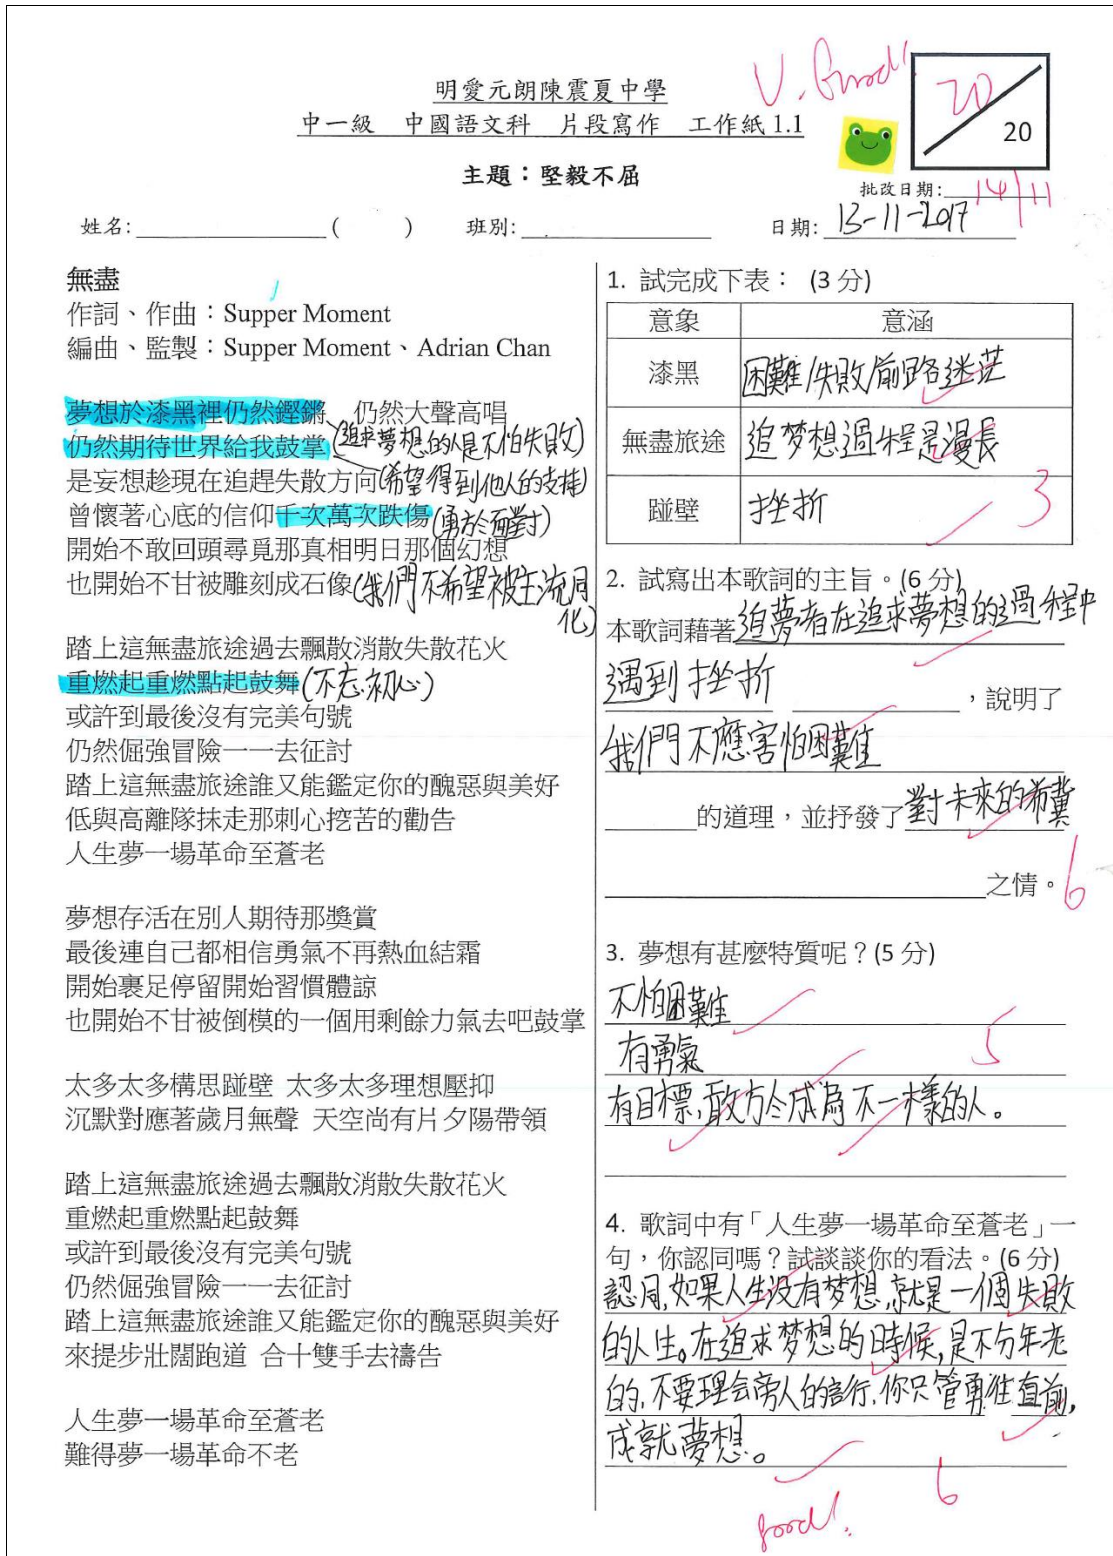 V. Good!
明愛元朗陳震夏中學
20
20
中一級 中國語文科 片段寫作 工作紙 1.1
主題：堅毅不屈
批改日期: 14/11
姓名: ( ) 班別: 日期: 13-11-2017
無盡
作詞、作曲：Supper Moment
編曲、監製：Supper Moment、Adrian Chan
夢想於漆黑裡仍然鏗鏘 仍然大聲高唱
仍然期待世界給我鼓掌(追求夢想的人是不怕失敗)
是妄想趁現在追趕失散方向(希望得到他人的支持)
曾懷著心底的信仰千次萬次跌傷(勇於面對)
開始不敢回頭尋覓那真相明日那個幻想
也開始不甘被雕刻成石像(我們不希望被主流同
化)
踏上這無盡旅途過去飄散消散失散花火
重燃起重燃點起鼓舞(不忘初心)
或許到最後沒有完美句號
仍然倔強冒險一一去征討
踏上這無盡旅途誰又能鑑定你的醜惡與美好
低與高離隊抹走那刺心挖苦的勸告
人生夢一場革命至蒼老
夢想存活在別人期待那獎賞
最後連自己都相信勇氣不再熱血結霜
開始裹足停留開始習慣體諒
也開始不甘被倒模的一個用剩餘力氣去吧鼓掌
太多太多構思踫壁 太多太多理想壓抑
沉默對應著歲月無聲 天空尚有片夕陽帶領
踏上這無盡旅途過去飄散消散失散花火
重燃起重燃點起鼓舞
或許到最後沒有完美句號
仍然倔強冒險一一去征討
踏上這無盡旅途誰又能鑑定你的醜惡與美好
來提步壯闊跑道 合十雙手去禱告
人生夢一場革命至蒼老
難得夢一場革命不老
1. 試完成下表： (3 分)
意象 意涵
漆黑 困難/失敗/前路迷茫
無盡旅途 追梦想過程是漫長
踫壁 挫折
3
2. 試寫出本歌詞的主旨。(6 分)
本歌詞藉著追夢者在追求夢想的過程中
遇到挫折 ，說明了
我們不應害怕困難
的道理，並抒發了對未來的希冀
之情。
6
3. 夢想有甚麼特質呢？(5 分)
不怕困難
有勇氣
5
有目標，敢於成為不一樣的人。
4. 歌詞中有「人生夢一場革命至蒼老」一
句，你認同嗎？試談談你的看法。(6 分)
認同,如果人生没有梦想,就是一個失敗
的人生。在追求梦想的時候,是不分年老
的,不要理会旁人的言行,你只管勇往直前,
成就夢想。
6
good!